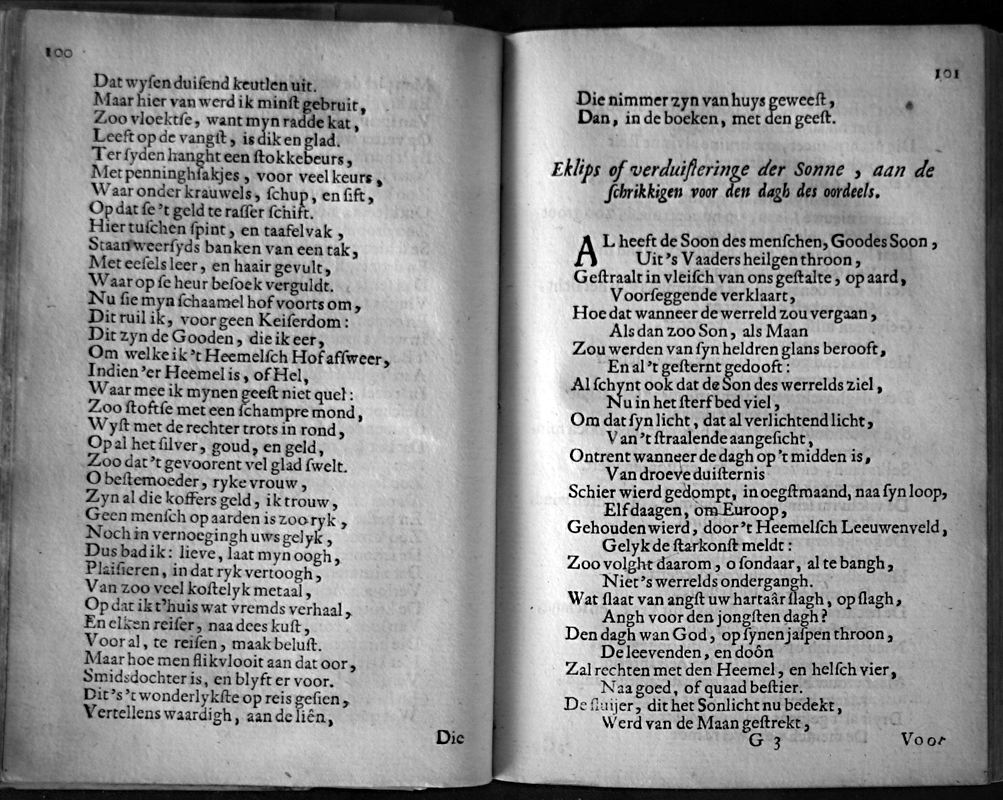 100
Dat wyſen duiſend keutlen uit.
Maar hier van werd ik minſt gebruit,
Zoo vloektſe, want myn radde kat,
Leeft op de vangſt, is dik en glad.
Ter ſyden hanght een ſtokkebeurs,
Met penninghſakjes, voor veel keurs,
Waar onder krauwels, ſchup, en ſift,
Op dat ſe 't geld te raſſer ſchift.
Hier tuſchen ſpint, en taafelvak,
Staan weerſyds banken van een tak,
Met eeſels leer, en haair gevult,
Waar op ſe heur beſoek verguldt.
Nu ſie myn ſchaamel hof voorts om,
Dit ruil ik, voor geen Keiſerdom:
Dit zyn de Gooden, die ik eer,
Om welke ik 't Heemelſch Hof afſweer,
Indien 'er Heemel is, of Hel,
Waar mee ik mynen geeſt niet quel:
Zoo ſtoftſe met een ſchampre mond,
Wyſt met de rechter trots in rond,
Op al het ſilver, goud, en geld,
Zoo dat 't gevoorent vel glad ſwelt.
O beſtemoeder, ryke vrouw,
Zyn al die koffers geld, ik trouw,
Geen menſch op aarden is zoo ryk,
Noch in vernoegingh uws gelyk,
Dus bad ik: lieve, laat myn oogh,
Plaiſieren, in dat ryk vertoogh,
Van zoo veel koſtelyk metaal,
Op dat ik t'huis wat vremds verhaal,
En elken reiſer, naa dees kuſt,
Voor al, te reiſen, maak beluſt.
Maar hoe men flikvlooit aan dat oor,
Smidsdochter is, en blyft er voor.
Dit 's 't wonderlykſte op reis geſien,
Vertellens waardigh, aan de liên,
Die
101
Die nimmer zyn van huys geweeſt,
Dan, in de boeken, met den geeſt.
Eklips of verduiſteringe der Sonne, aan de
ſchrikkigen voor den dagh des oordeels.
AL heeft de Soon des menſchen, Goodes Soon,
Uit 's Vaaders heilgen throon,
Geſtraalt in vleiſch van ons geſtalte, op aard,
Voorſeggende verklaart,
Hoe dat wanneer de werreld zou vergaan,
Als dan zoo Son, als Maan
Zou werden van ſyn heldren glans berooft,
En al 't geſternt gedooft:
Al ſchynt ook dat de Son des werrelds ziel,
Nu in het ſterf bed viel,
Om dat ſyn licht, dat al verlichtend licht,
Van 't ſtraalende aangeſicht,
Ontrent wanneer de dagh op 't midden is,
Van droeve duiſternis
Schier wierd gedompt, in oegſtmaand, naa ſyn loop,
Elf daagen, om Euroop,
Gehouden wierd, door 't Heemelſch Leeuwenveld,
Gelyk de ſtarkonſt meldt:
Zoo volght daarom, o ſondaar, al te bangh,
Niet 's werrelds ondergangh.
Wat ſlaat van angſt uw hartaâr ſlagh, op ſlagh,
Angh voor den jongſten dagh?
Den dagh wan God, op ſynen jaſpen throon,
De leevenden, en doôn
Zal rechten met den Heemel, en helſch vier,
Naa goed, of quaad beſtier.
De ſluijer, dit het Sonlicht nu bedekt,
Werd van de Maan geſtrekt,
G 3
Voor